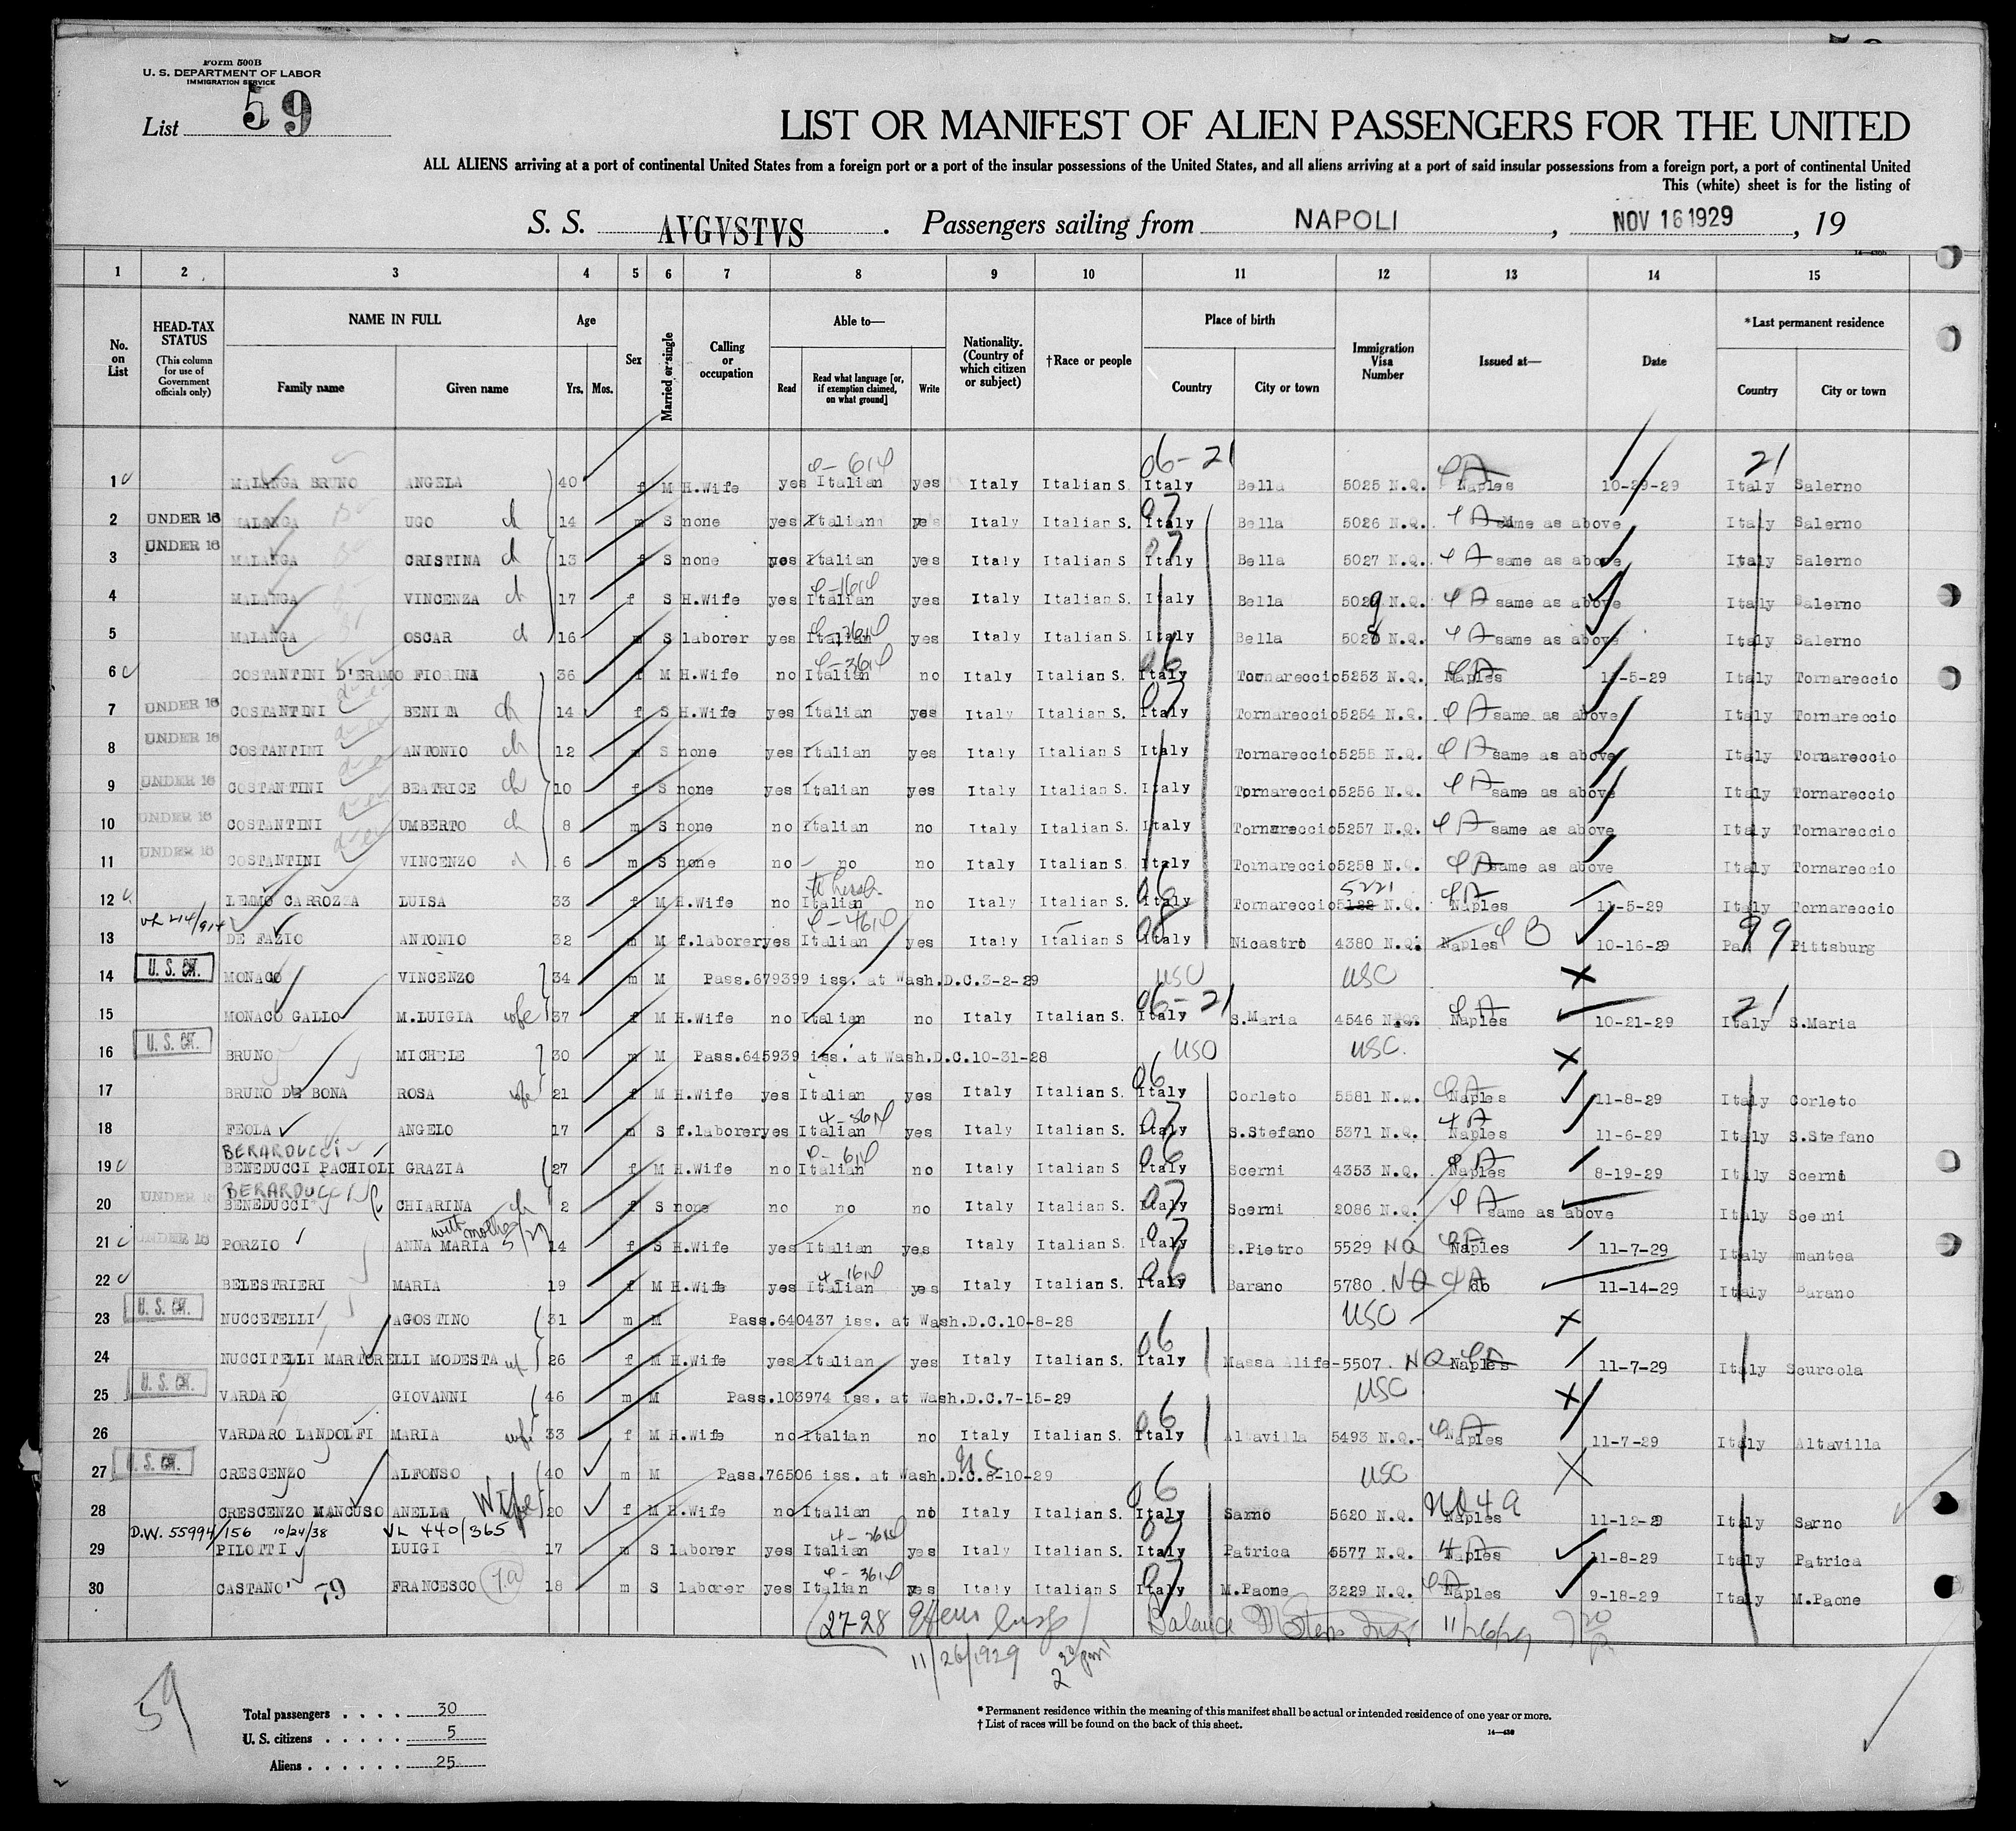 Form 500B
U. S. DEPARTMENT OF LABOR
IMMIGRATION SERVICE
List 59
LIST OR MANIFEST OF ALIEN PASSENGERS FOR THE UNITED
ALL ALIENS arriving at a port of continental United States from a foreign port or a port of the insular possessions of the United States, and all aliens arriving at a port of said insular possessions from a foreign port, a port of continental United
This (white) sheet is for the listing of
S. S. AVGVSTVS. Passengers sailing from NAPOLI, NOV 16 1929, 19
1 2 3 4 5 6 7 8 9 10 11 12 13 14 15
No. on List
HEAD-TAX STATUS (This column for use of Government officials only)
NAME IN FULL Family name Given name
Age Yrs. Mos.
Sex
Married or single
Calling or occupation
Able to— Read Read what language [or, if exemption claimed, on what ground] Write
Nationality. (Country of which citizen or subject)
†Race or people
Place of birth Country City or town
Immigration Visa Number
Issued at—
Date
*Last permanent residence Country City or town
06-21 21
1 MALANGA BRUNO ANGELA 40 f M H.Wife yes Italian yes Italy Italian S. Italy Bella 5025 N.Q. Naples 10-29-29 Italy Salerno
2 UNDER 16 MALANGA UGO ch 14 m S none yes Italian yes Italy Italian S. Italy Bella 5026 N.Q. same as above Italy Salerno
3 UNDER 16 MALANGA CRISTINA ch 13 f S none yes Italian yes Italy Italian S Italy Bella 5027 N.Q. same as above Italy Salerno
4 MALANGA VINCENZA ch 17 f S H.Wife yes Italian yes Italy Italian S. Italy Bella 5029 N.Q. same as above Italy Salerno
5 MALANGA OSCAR 16 m S laborer yes Italian yes Italy Italian S. Italy Bella 5028 N.Q. same as above Italy Salerno
6 COSTANTINI D'ERAMO FIORINA 36 f M H.Wife no Italian no Italy Italian S. Italy Tornareccio 5253 N.Q. Naples 11-5-29 Italy Tornareccio
7 UNDER 16 COSTANTINI BENITA ch 14 f S H.Wife yes Italian yes Italy Italian S. Italy Tornareccio 5254 N.Q. same as above Italy Tornareccio
8 UNDER 16 COSTANTINI ANTONIO ch 12 m S none yes Italian yes Italy Italian S Italy Tornareccio 5255 N.Q. same as above Italy Tornareccio
9 UNDER 16 COSTANTINI BEATRICE ch 10 f S none yes Italian yes Italy Italian S. Italy Tornareccio 5256 N.Q. same as above Italy Tornareccio
10 UNDER 16 COSTANTINI UMBERTO ch 8 m S none no Italian no Italy Italian S. Italy Tornareccio 5257 N.Q. same as above Italy Tornareccio
11 UNDER 16 COSTANTINI VINCENZO 6 m S none no no no Italy Italian S Italy Tornareccio 5258 N.Q. same as above Italy Tornareccio
5221
12 LEMMO CARROZZA LUISA 33 f M H.Wife no Italian no Italy Italian S. Italy Tornareccio 5122 N.Q. Naples 11-5-29 Italy Tornareccio
13 DE FAZIO ANTONIO 32 m M f.laborer yes Italian yes Italy Italian S Italy Nicastro 4380 N.Q. Naples 10-16-29 Pa. 99 Pittsburg
14 U. S. CIT. MONACO VINCENZO 34 m M Pass.679399 iss. at Wash.D.C.3-2-29 USC USC
06-21 21
15 MONACO GALLO M.LUIGIA wife 37 f M H.Wife no Italian no Italy Italian S. Italy S.Maria 4546 N.Q. Naples 10-21-29 Italy S.Maria
16 U. S. CIT. BRUNO MICHELE 30 m M Pass.645939 iss. at Wash.D.C.10-31-28 USC USC.
17 BRUNO DE BONA ROSA wife 21 f M H.Wife yes Italian yes Italy Italian S. Italy Corleto 5581 N.Q. Naples 11-8-29 Italy Corleto
18 FEOLA ANGELO 17 m S f.laborer yes Italian yes Italy Italian S. Italy S.Stefano 5371 N.Q. Naples 11-6-29 Italy S.Stefano
BERARDUCCI
19 BENEDUCCI PACHIOLI GRAZIA 27 f M H.Wife no Italian no Italy Italian S Italy Scerni 4353 N.Q. Naples 8-19-29 Italy Scerni
BERARDUCCI
20 BENEDUCCI CHIARINA ch 2 f S none no no no Italy Italian S. Italy Scerni 2086 N.Q. same as above Italy Scerni
with mother
21 UNDER 16 PORZIO ANNA MARIA 14 f S H.Wife yes Italian yes Italy Italian S. Italy S.Pietro 5529 NQ Naples 11-7-29 Italy Amantea
22 BELESTRIERI MARIA 19 f M H.Wife yes Italian yes Italy Italian S. Italy Barano 5780 NQ do 11-14-29 Italy Barano
23 U. S. CIT. NUCCETELLI AGOSTINO 31 m M Pass.640437 iss. at Wash.D.C.10-8-28 USC
24 NUCCITELLI MARTORELLI MODESTA 26 f M H.Wife yes Italian yes Italy Italian S. Italy Massa Alife-5507 NQ Naples 11-7-29 Italy Scurcola
25 U. S. CIT. VARDARO GIOVANNI 46 m M Pass.103974 iss. at Wash.D.C.7-15-29 USC
26 VARDARO LANDOLFI MARIA 33 f M H.Wife no Italian no Italy Italian S. Italy Altavilla 5493 N.Q. Naples 11-7-29 Italy Altavilla
27 U. S. CIT. CRESCENZO ALFONSO 40 m M Pass.76506 iss. at Wash.D.C.8-10-29 USC
28 CRESCENZO MANCUSO ANELLA Wife 20 f M H.Wife no Italian no Italy Italian S. Italy Sarno 5620 N.Q. Naples 11-12-29 Italy Sarno
D.W. 55994/156 10/24/38 VL 440/365
29 PILOTTI LUIGI 17 m S laborer yes Italian yes Italy Italian S. Italy Patrica 5577 N.Q. Naples 11-8-29 Italy Patrica
30 CASTANO' 79 FRANCESCO 18 m S laborer yes Italian yes Italy Italian S Italy M.Paone 3229 N.Q. Naples 9-18-29 Italy M.Paone
27-28 Balance 11/26/29
11/26/1929
59
Total passengers . . . . 30
U. S. citizens . . . . . 5
Aliens . . . . . . 25
* Permanent residence within the meaning of this manifest shall be actual or intended residence of one year or more.
† List of races will be found on the back of this sheet.
14—430